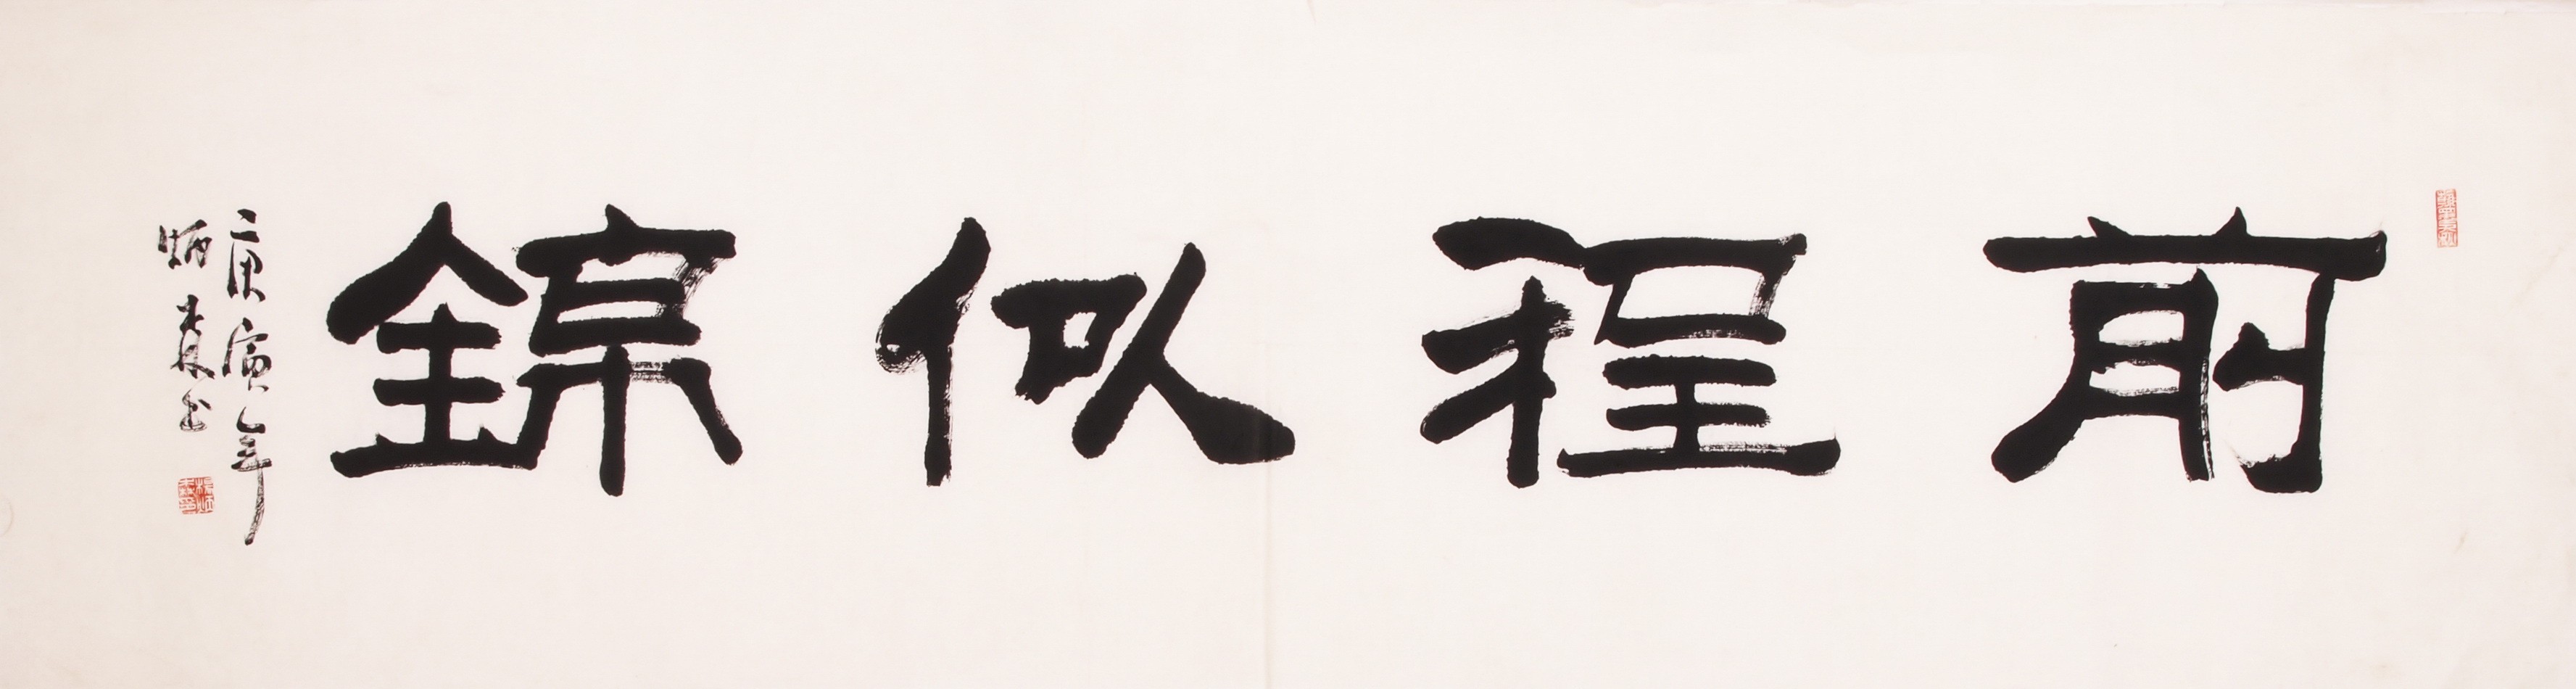 前程似錦
庚寅年
炳森书